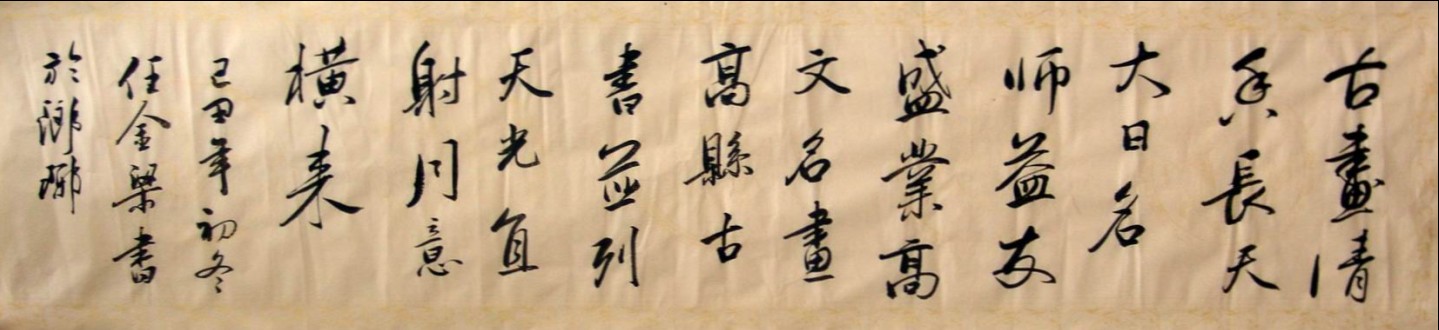 古畫清
香長天
大日名
师益友
盛業高
文名畫
高縣古
書並列
天光直
射同意
橫来
己丑年初冬
任金梁書
於瑯琊